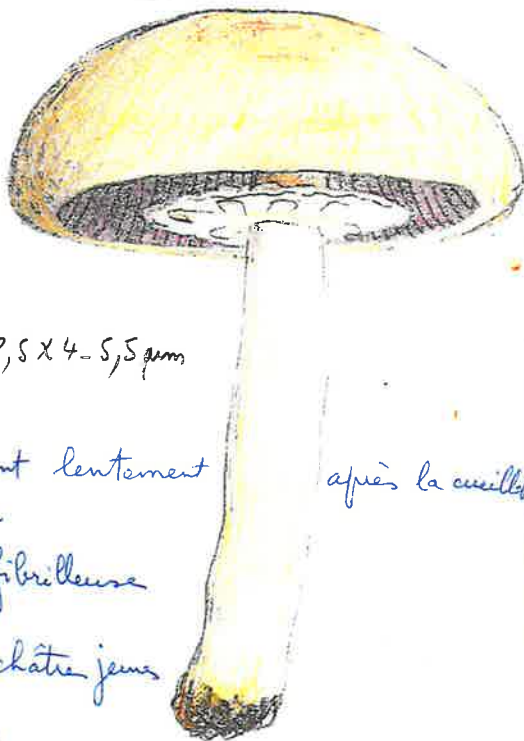 ,5 X 4-5,5 µm
nt lentement après la cueille
fibrilleuse
châtre jeunes